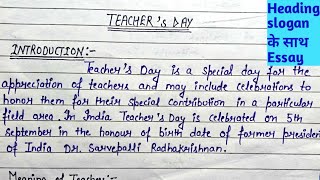 TEACHER's DAY
Heading
slogan
के साथ
Essay
INTRODUCTION:-
Teacher's Day is a special day for the
appreciation of teachers and may include celebrations to
honor them for their special contribution in a particular
field area. In India Teacher's Day is celebrated on 5th
September in the honour of birth date of former presiden
of India Dr. Sarvepalli Radhakrishnan.
Meaning of Teacher:-